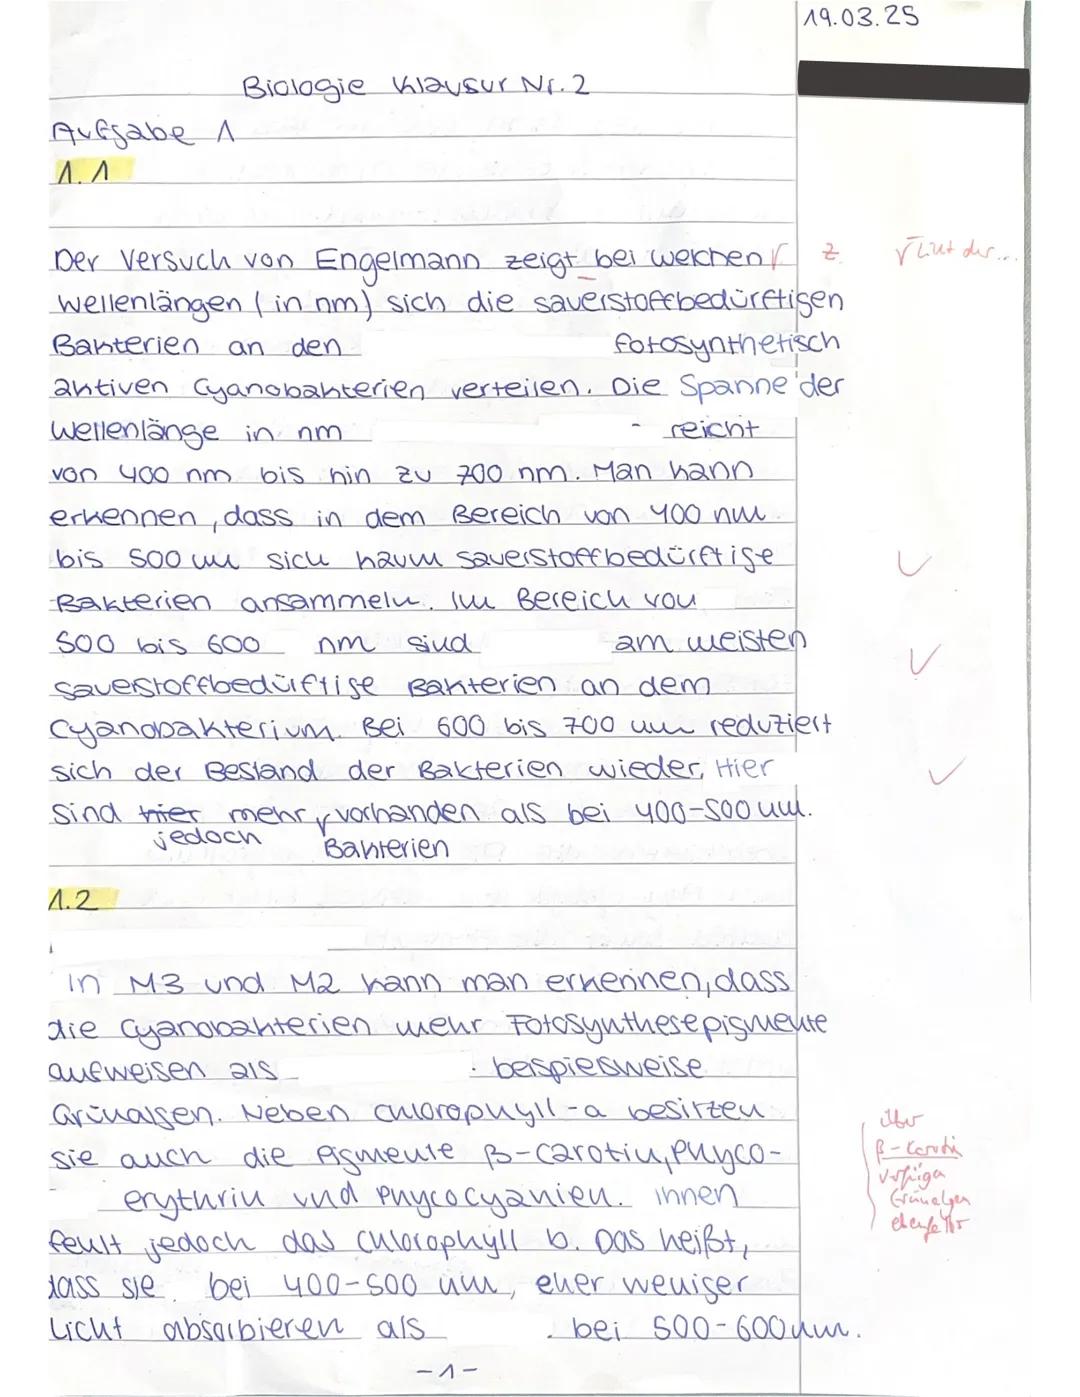 19.03.25
Biologie Klausur Nr. 2
Aufgabe 1
1.1
Der Versuch von Engelmann zeigt bei welchen √ Z. √ Laut der...
Wellenlängen (in nm) sich die sauerstoffbedürftigen
Bakterien an den fotosynthetisch
aktiven Cyanobakterien verteilen. Die Spanne der
Wellenlänge in nm reicht
von 400 nm bis hin zu 700 nm. Man kann
erkennen, dass in dem Bereich von 400 nm
bis 500 nm sich kaum sauerstoffbedürftige
Bakterien ansammeln. Im Bereich von
500 bis 600 nm sind am meisten
sauerstoffbedürftige Bakterien an dem
Cyanobakterium. Bei 600 bis 700 nm reduziert
sich der Bestand der Bakterien wieder, Hier
sind hier mehr vorhanden als bei 400-500 nm.
jedoch Bakterien
1.2
In M3 und M2 kann man erkennen, dass
die Cyanobakterien mehr Fotosynthesepigmente
aufweisen als beispielsweise
Grünalgen. Neben Chlorophyll-a besitzen
sie auch die Pigmente β-Carotin, Phyco-
erythrin und Phycocyanien. Ihnen
fehlt jedoch das Chlorophyll b. Das heißt,
dass sie bei 400-500 nm, eher weniger
Licht absorbieren als bei 500-600 nm.
über
β-Carotin
verfügen
Grünalgen
ebenfalls
-1-